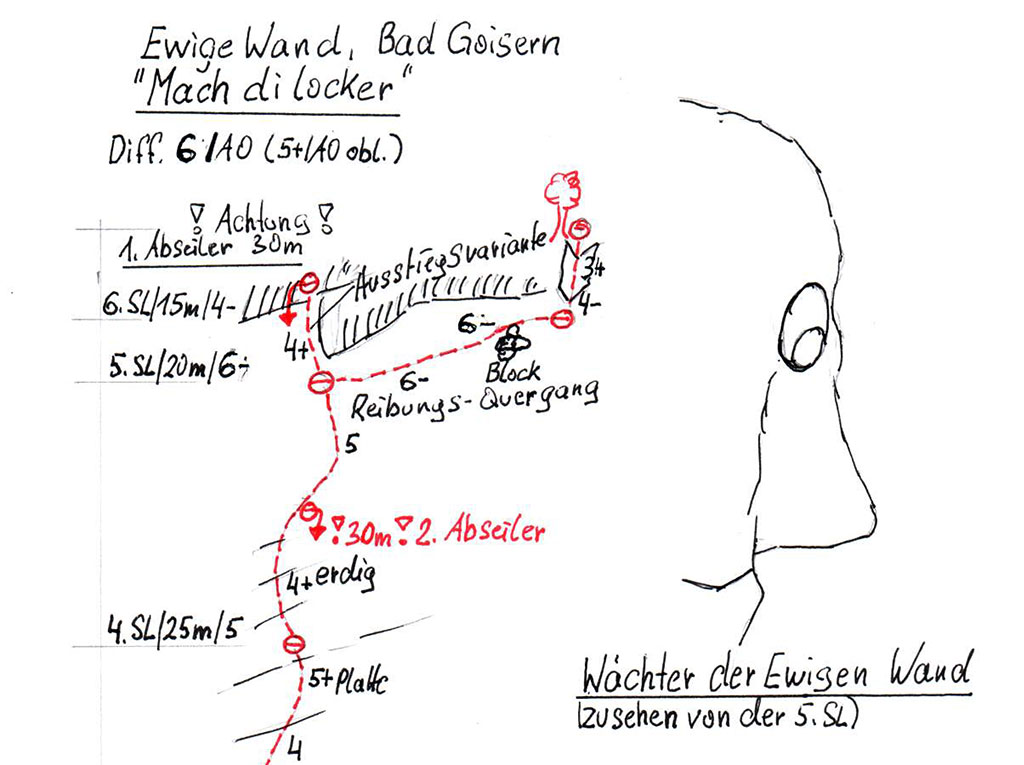 Ewige Wand, Bad Goisern
"Mach di locker"
Diff. 6-/A0 (5+/A0 obl.)
! Achtung !
1. Abseiler 30m
Ausstiegsvariante
3+
6.SL/15m/4-
4-
4+
6-
5.SL/20m/6-
Block
6-
Reibungs-Quergang
5
!30m! 2. Abseiler
4+ erdig
4.SL/25m/5
5+ Platte
4
Wächter der Ewigen Wand
(zusehen von der 5.SL)